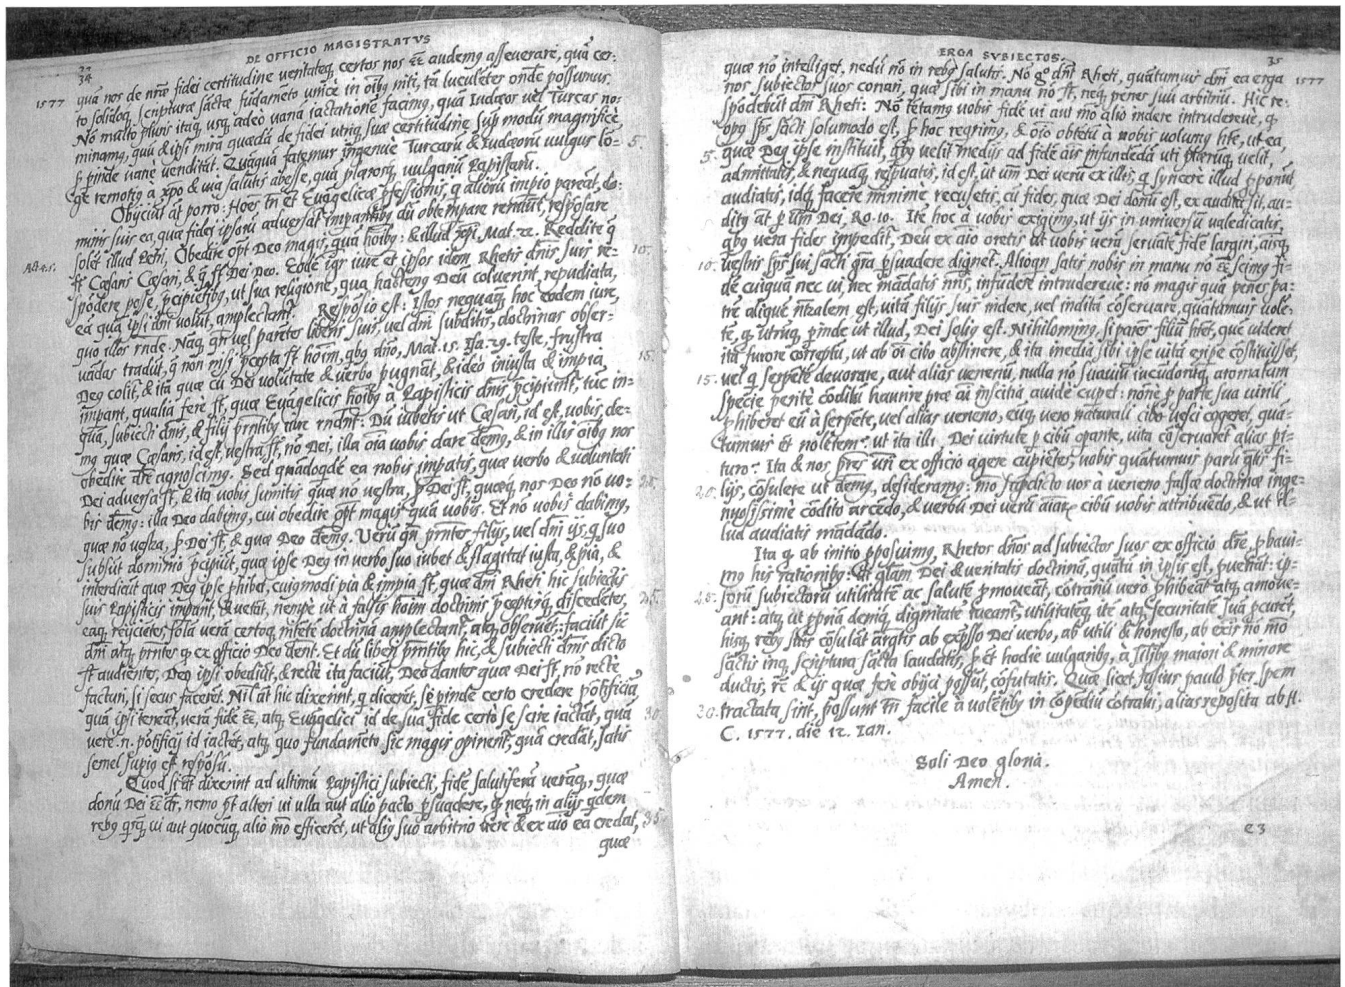 DE OFFICIO MAGISTRATVS
34
1577
quā nos de nr̄a fidei certitudine veritateq, certos nos eē̄ audemq asseverare, quā cer-
to solidoq, scripturæ sāctæ fūdamēto vnicè in oībq niti, tā luculēter ondē possumus.
Nō multo pluri itaq, usq, adeò vanā iactationē facimq, quā Iudæos vel Turcas no-
minamq, quū & ipsi mirā quādā de fidei utriq, suæ certitudine sup modū magnificè
5.
& pinde vane vēditāt. Quāquā fatemur īgenue Turcarū & Iudæorū vulgus lō-
gè remotiq à xp̄o & via salutis abesse, quā plærorq, vulgariū Papistarū.
Obijciūt at porrò: Hoēs tn̄ et Evāgelicæ pfessionis, q aliorū impio pareāt, do-
minis suis ea, quæ fidei ipsorū adversāt impātibq dū obtēpare renuūt, respōsare
solēt illud Petri, Obedire opt Deo magis, quā hoībq: & illud xp̄i, Mat. 22. Reddite q
Act. 4. 5.
10.
st Cæsaris Cæsari, & q̄ st Dei Deo. Eodē igr iure et ipsos idem Rhetis dn̄is suis re-
spōdere posse, pcipiētibq, ut sua religione, qua hactenq Deū coluerint, repudiata,
eā quā ipsi dn̄i volūt, amplectant. Respōsio est: Istos nequaq, hoc eodem iure,
quo illos rn̄de. Nāq, qn̄ vel parētes liberis suis, vel dn̄i subditis, doctrinas obser-
vādas tradūt, q̄ non nisi pcepta st hoīm, qbq dn̄o, Mat. 15. Isa. 29. teste, frustra
15.
Deq colit, & ita quæ cū Dei volūtate & verbo pugnāt, & ideò iniusta & impia
impant, qualia ferè st, quæ Evāgelicis hoībq à Papisticis dn̄is pcipiunt, tūc in-
quā, subiecti dn̄is, & filij prn̄tibq iure rn̄dnt: Dū iubetis ut Cæsari, id est, vobis, de-
mq quæ Cæsaris, id est, vestra st, nō Dei, illa oīa vobis dare dēmq, & in illis oībq nos
obedire dr̄e agnoscimq. Sed quādoqdē ea nobis impatis, quæ verbo & volūtati
20.
Dei adversa st, & ita vobis sumitis quæ nō vestra, s; Dei st, quæq, nos Deo nō vo-
bis dēmq: illa Deo dabimq, cui obedire opt magis quā vobis. Et nō vobis dabimq,
quæ nō vestra, s; Dei st, & quæ Deo dēmq. Verū qn̄ prn̄tes filijs, vel dn̄i ijs, q suo
subsūt dominio pcipiūt, quæ ipse Deq in verbo suo iubet & flagitat iusta, & pia, &
interdicūt quæ Deq ipse phibet, cuiqmodi pia & impia st, quæ dn̄i Rheti hic subiectis
25.
suis Papisticis impant & vetāt, nempe ut à falsis hoīm doctrinis pceptisq, discedētes,
eaq, reijciētes, solā verā certoq, nitētē doctrinā amplectant, atq, observēt: faciūt sic
dn̄i atq, prn̄tes q ex officio Deo dent. Et dū liberi prn̄tibq hic, & subiecti dn̄is dicto
st audientes, Deo ipsi obediūt, & recte ita faciūt, Deo dantes quæ Dei st, nō recte
facturi, si secus facerēt. Nil at hic dixerint, q dicerēt, se pinde certo credere pōtificiā,
30.
quā ipsi teneāt, verā fidē eē, atq, Evāgelici id de sua fide certò se scire iactāt, quā
vere. n. pōtificij id iactēt, atq, quo fundamēto sic magis opinent, quā credāt, satis
semel supiq est respōsū.
Quod si at dixerint ad ultimū Papistici subiecti, fidē salutiferā verāq, quæ
donū Dei eē dr, nemo pt alteri vi ulla aut alio pacto psuadere, q neq, in alijs qdem
35.
rebq qsq, vi aut quocūq, alio mō efficeret, ut aliq suo arbitrio verè & ex aīo ea credat,
quæ
ERGA SVBIECTOS.
35
1577
quæ nō intelliget, nedū nō in rebq salutis. Nō go dn̄i Rheti, quātumvis dn̄i ea erga
nos subiectos suos conari, quæ sibi in manu nō st, neq, penes suū arbitriū. Hic re-
spōdebūt dn̄i Rheti: Nō tētamq vobis fidē vi aut mō alio indere intrudereue, q
opq sps sācti solūmodo est, s; hoc reqrimq, & oīo obtētū à nobis volumq hr̄e, ut ea,
5.
quæ Deq ipse instituit, qbq velit medijs ad fidē aīs infundēdā uti plærūq, velit,
admittatis, & nequaq, respuatis, id est, ut vm̄ Dei verū ex illis, q syncere illud pponūt
audiatis, idq, facere minimè recusetis, cū fides, quæ Dei donū est, ex auditu sit, au-
ditq at p vm̄ Dei, Ro. 10. Itē hoc à vobis exigimq, ut ijs in universū valedicatis,
qbq vera fides impedit, Deū ex aīo oretis ut vobis verā servatē fidē largiri, aīisq,
10.
vestris sps sui sācti gr̄a psuadere dignet. Alioqn satis nobis in manu nō eē scimq fi-
dē cuiquā nec vi, nec mādatis nr̄is, infūdere intrudereue: nō magis quā penes pa-
trē aliquē n̄r̄alem est, vitā filijs suis indere, vel inditā cōservare, quātumvis vole-
te, q utrūq, pinde ut illud, Dei soliq est. Nihilominq, si pater filiū hr̄et, quē videret
ita furore correptū, ut ab oī cibo abstinere, & ita inedia sibi ipse vitā eripe cōstituisset,
15.
vel q serpētē devorare, aut alias venenū, nulla nō suaviū iucudorūq, aromatum
specie peritè cōditū haurire præ aīi īscitia avidè cupet: nōne p parte sua virili
phiberet eū à serpēte, vel alias veneno, eūq, vero naturali cibo vesci cogeret, quā-
tumvis et nolētem? ut ita illi, Dei virtute p cibū opante, vita cōservaret alias pi-
turo? Ita & nos pres vr̄i ex officio agere cupiētes, vobis quātumvis parū qtis fi-
20.
lijs, cōsulere ut dēmq, desideramq: mō supdicto vos à veneno falsæ doctrinæ inge-
niosissime cōdito arcēdo, & verbū Dei verū aīarq cibū vobis attribuēdo, & ut il-
lud audiatis mādādo.
Ita q ab initio pposuimq, Rhetos dn̄os ad subiectos suos ex officio dr̄e, pbavi-
mq his rationibq: ut glām Dei & veritatis doctrinā, quātū in ipsis est, pvehāt: ip-
25.
sorū subiectorū utilitatē ac salutē pmoveāt, cōtrariū vero phibeāt atq, amove-
ant: atq, ut ppriā deniq, dignitatē tueant, utilitatēq, itē atq, securitatē suā pcurēt,
hisq, rebq sitis cōsulāt argtis ab expsso Dei verbo, ab utili & honesto, ab exis nō mō
sāctis inq, scriptura sācta laudatis, s; et hodie vulgaribq, à silibq maiori & minore
ductis, rē & ijs quæ ferè obijci possūt, cōfutatis. Quæ licet, fassus paulò pter spem
30.
tractata sint, possunt tn̄ facile à volētibq in cōpēdiū cōtrahi, alias reposita ab H.
C. 1577. die 12. Ian.
Soli Deo gloria.
Amen.
e3